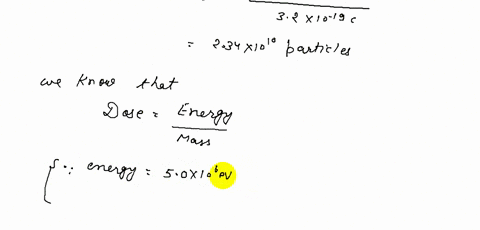 3.2 × 10⁻¹⁹ c
= 2.34 × 10¹⁰ particles
we know that
Dose = Energy
Mass
∵ energy = 5.0 × 10⁶ eV